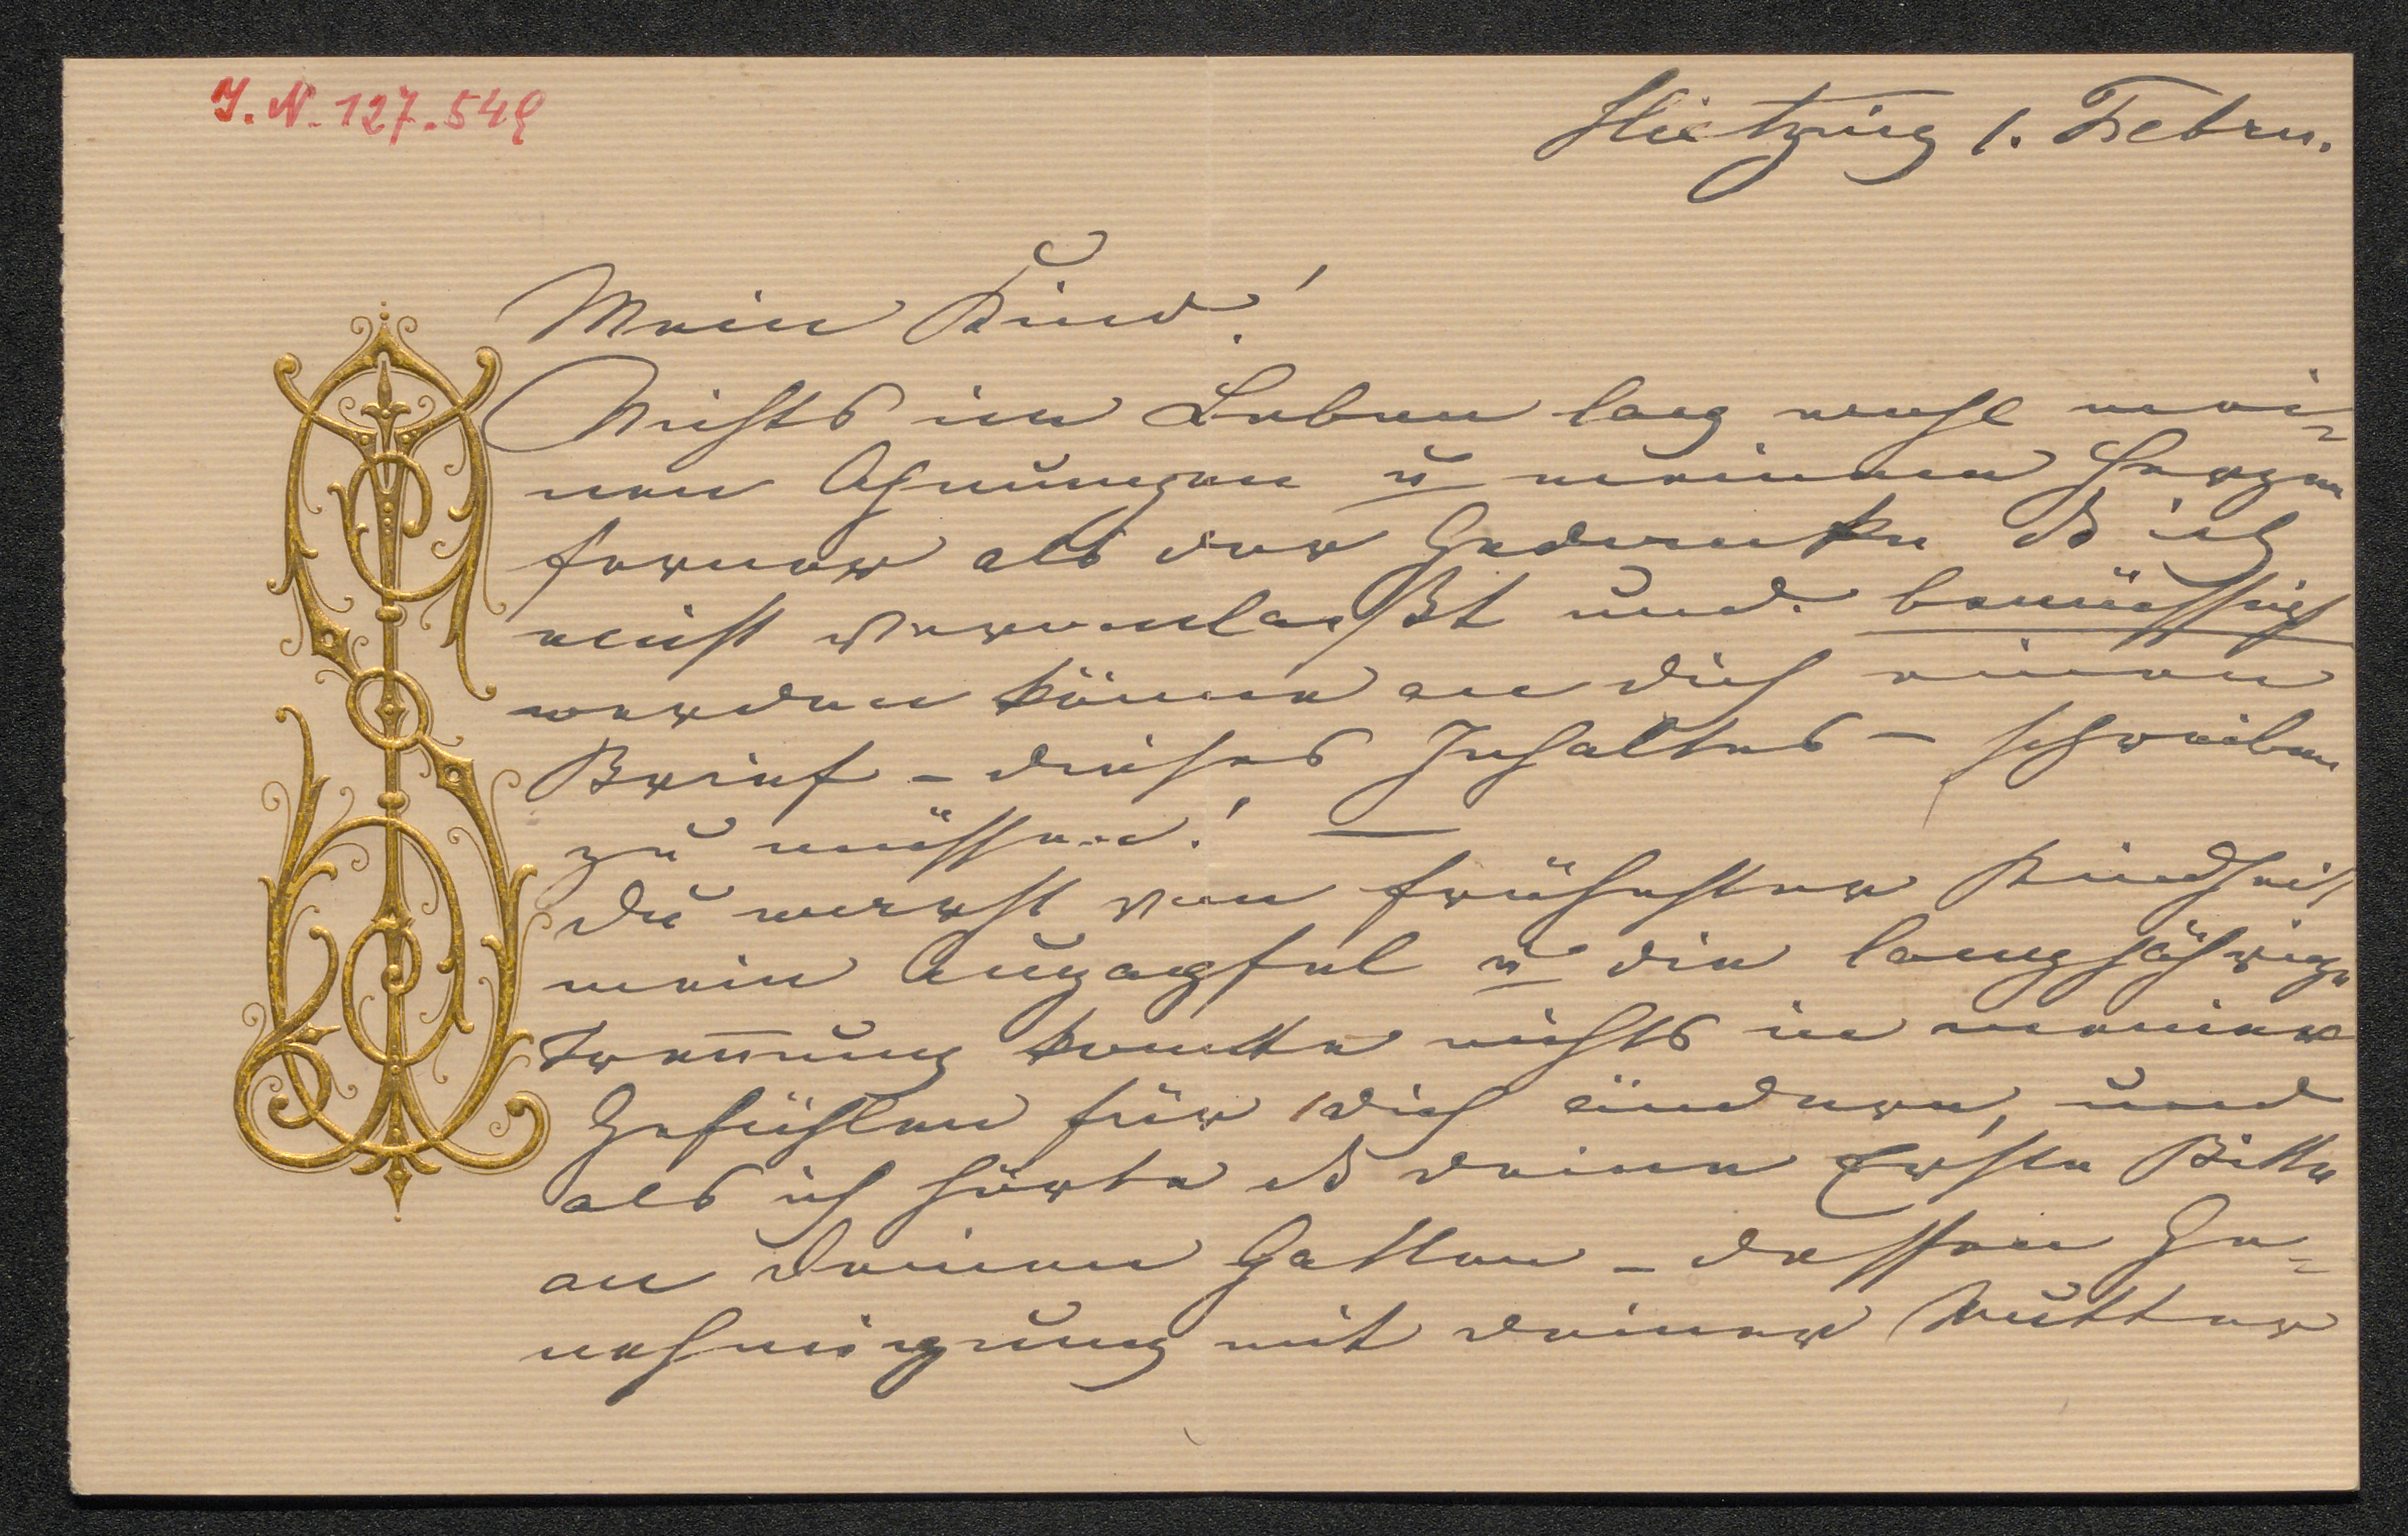 I. N. 127.549
Hietzing 1. Febru.
Mein Kind!
Nichts im Leben lag wohl mei-
nen Ahnungen u meinem Herzen
ferner als der Gedanke dß ich
einst veranlaßt und bemüssigt
werden könne an dich einen
Brief – dieses Inhaltes – schreiben
zu müssen! —
Du warst von frühester Kindheit
mein Augapfel u die langjährige
Trennung konnte nichts in meinen
Gefühlen für dich ändern, und
als ich hörte dß deine Erste Bitte
an deinen Gatten – dessen Ge-
nehmigung mit deiner Mutter